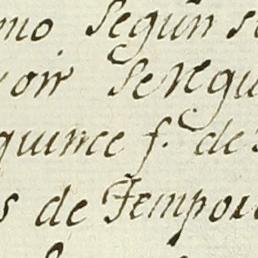 mo Según s
oir Seregu
quince f. de
s de Tempo